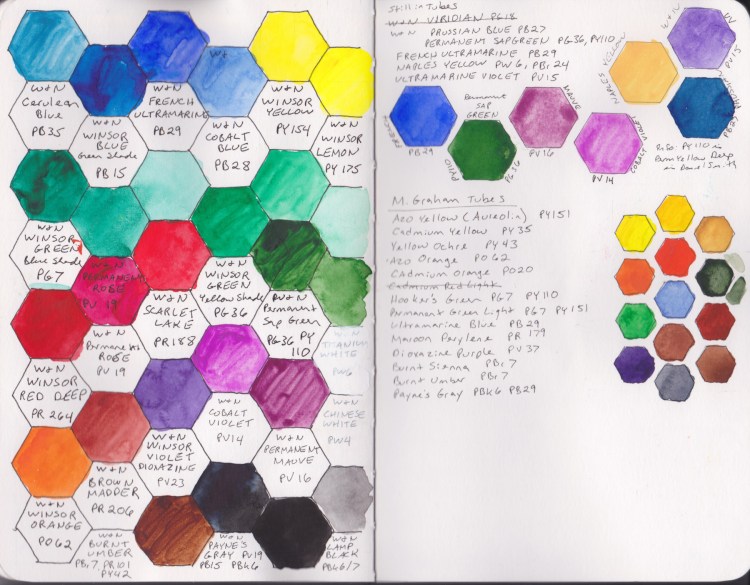 W+N
Cerulean
Blue
PB35
W+N
WINSOR
BLUE
Green Shade
PB15
W+N
FRENCH
ULTRAMARINE
PB29
W+N
COBALT
BLUE
PB28
W+N
WINSOR
YELLOW
PY154
W+N
WINSOR
LEMON
PY175
W+N
WINSOR
GREEN
Blue Shade
PG7
W+N
PERMANENT
ROSE
PV 19
W+N
Permanent
ROSE
PV 19
W+N
SCARLET
LAKE
PR188
W+N
WINSOR
GREEN
Yellow Shade
PG36
W+N
Permanent
Sap Green
PG36 PY
110
W+N
TITANIUM
WHITE
PW6
W+N
WINSOR
RED DEEP
PR264
W+N
BROWN
MADDER
PR206
W+N
WINSOR
VIOLET
DIOXAZING
PV23
W+N
COBALT
VIOLET
PV14
W+N
PERMANENT
MAUVE
PV16
W+N
CHINESE
WHITE
PW4
W+N
WINSOR
ORANGE
PO62
W+N
BURNT
UMBER
PBr7, PR101
PY42
W+N
PAYNE'S
GRAY PV19
PB15 PBk6
W+N
LAMP
BLACK
PBk6/7
Still in Tubes
W+N VIRIDIAN PG18
W+N PRUSSIAN BLUE PB27
PERMANENT SAPGREEN PG36, PY110
FRENCH ULTRAMARINE PB29
NABLES YELLOW PW6, PBr24
ULTRAMARINE VIOLET PV15
FRENCH
PB29
Permanent
SAP
GREEN
PY110
PG36
MAUVE
PV16
COBALT VIOLET
PV14
NABLES YELLOW
PV15
PB27
Also: PY110 is
Perm Yellow Deep
in Daniel Smith
M. Graham Tubes
Azo Yellow (Aureolin) PY151
Cadmium Yellow PY35
Yellow Ochre PY43
Azo Orange PO62
Cadmium Orange PO20
Cadmium Red Light
Hooker's Green PG7 PY110
Permanent Green Light PG7 PY151
Ultramarine Blue PB29
Maroon Perylene PR 179
Dioxazine Purple PV 37
Burnt Sienna PBr7
Burnt Umber PBr7
Payne's Gray PBK6 PB29